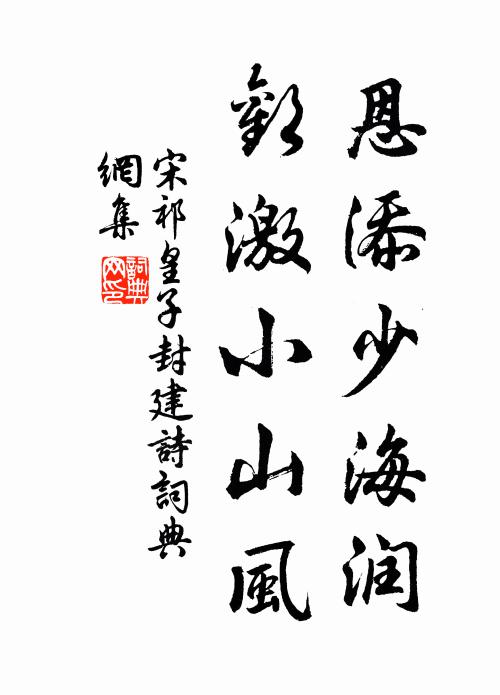 恩添少海润
歡激小山風
宋祁皇子封建詩詞典
網集
詞典
网印